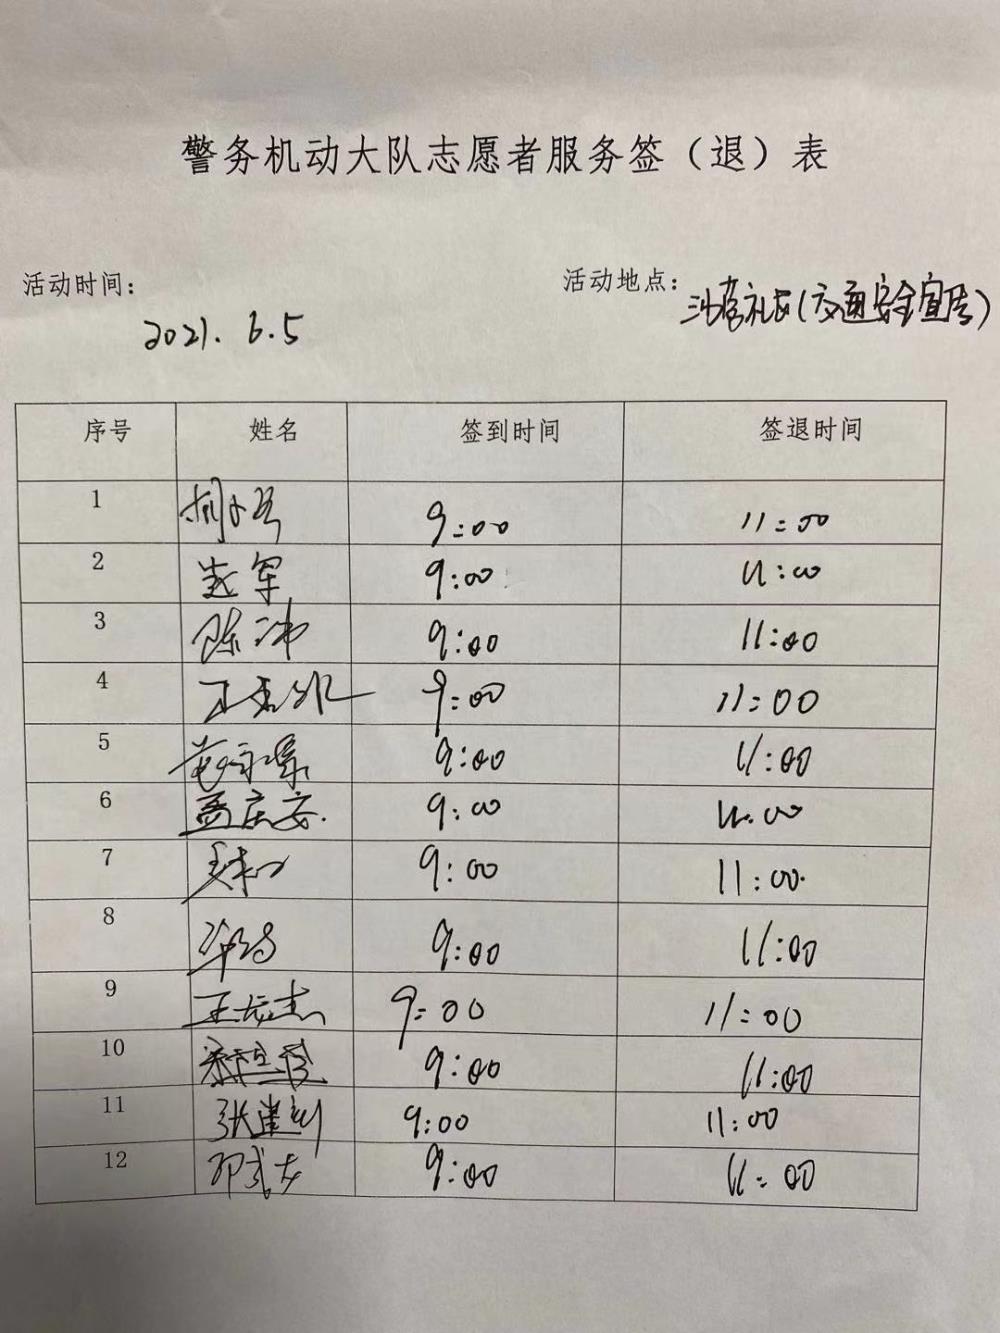 警务机动大队志愿者服务签（退）表
活动时间： 活动地点：
2021. 6.5 (交通安全宣传)
序号 姓名 签到时间 签退时间
1 9:00 11:00
2 赵军 9:00 11:00
3 陈沛 9:00 11:00
4 9:00 11:00
5 9:00 11:00
6 孟庆安 9:00 11:00
7 9:00 11:00
8 9:00 11:00
9 王志杰 9:00 11:00
10 9:00 11:00
11 张建利 9:00 11:00
12 邓武友 9:00 11:00